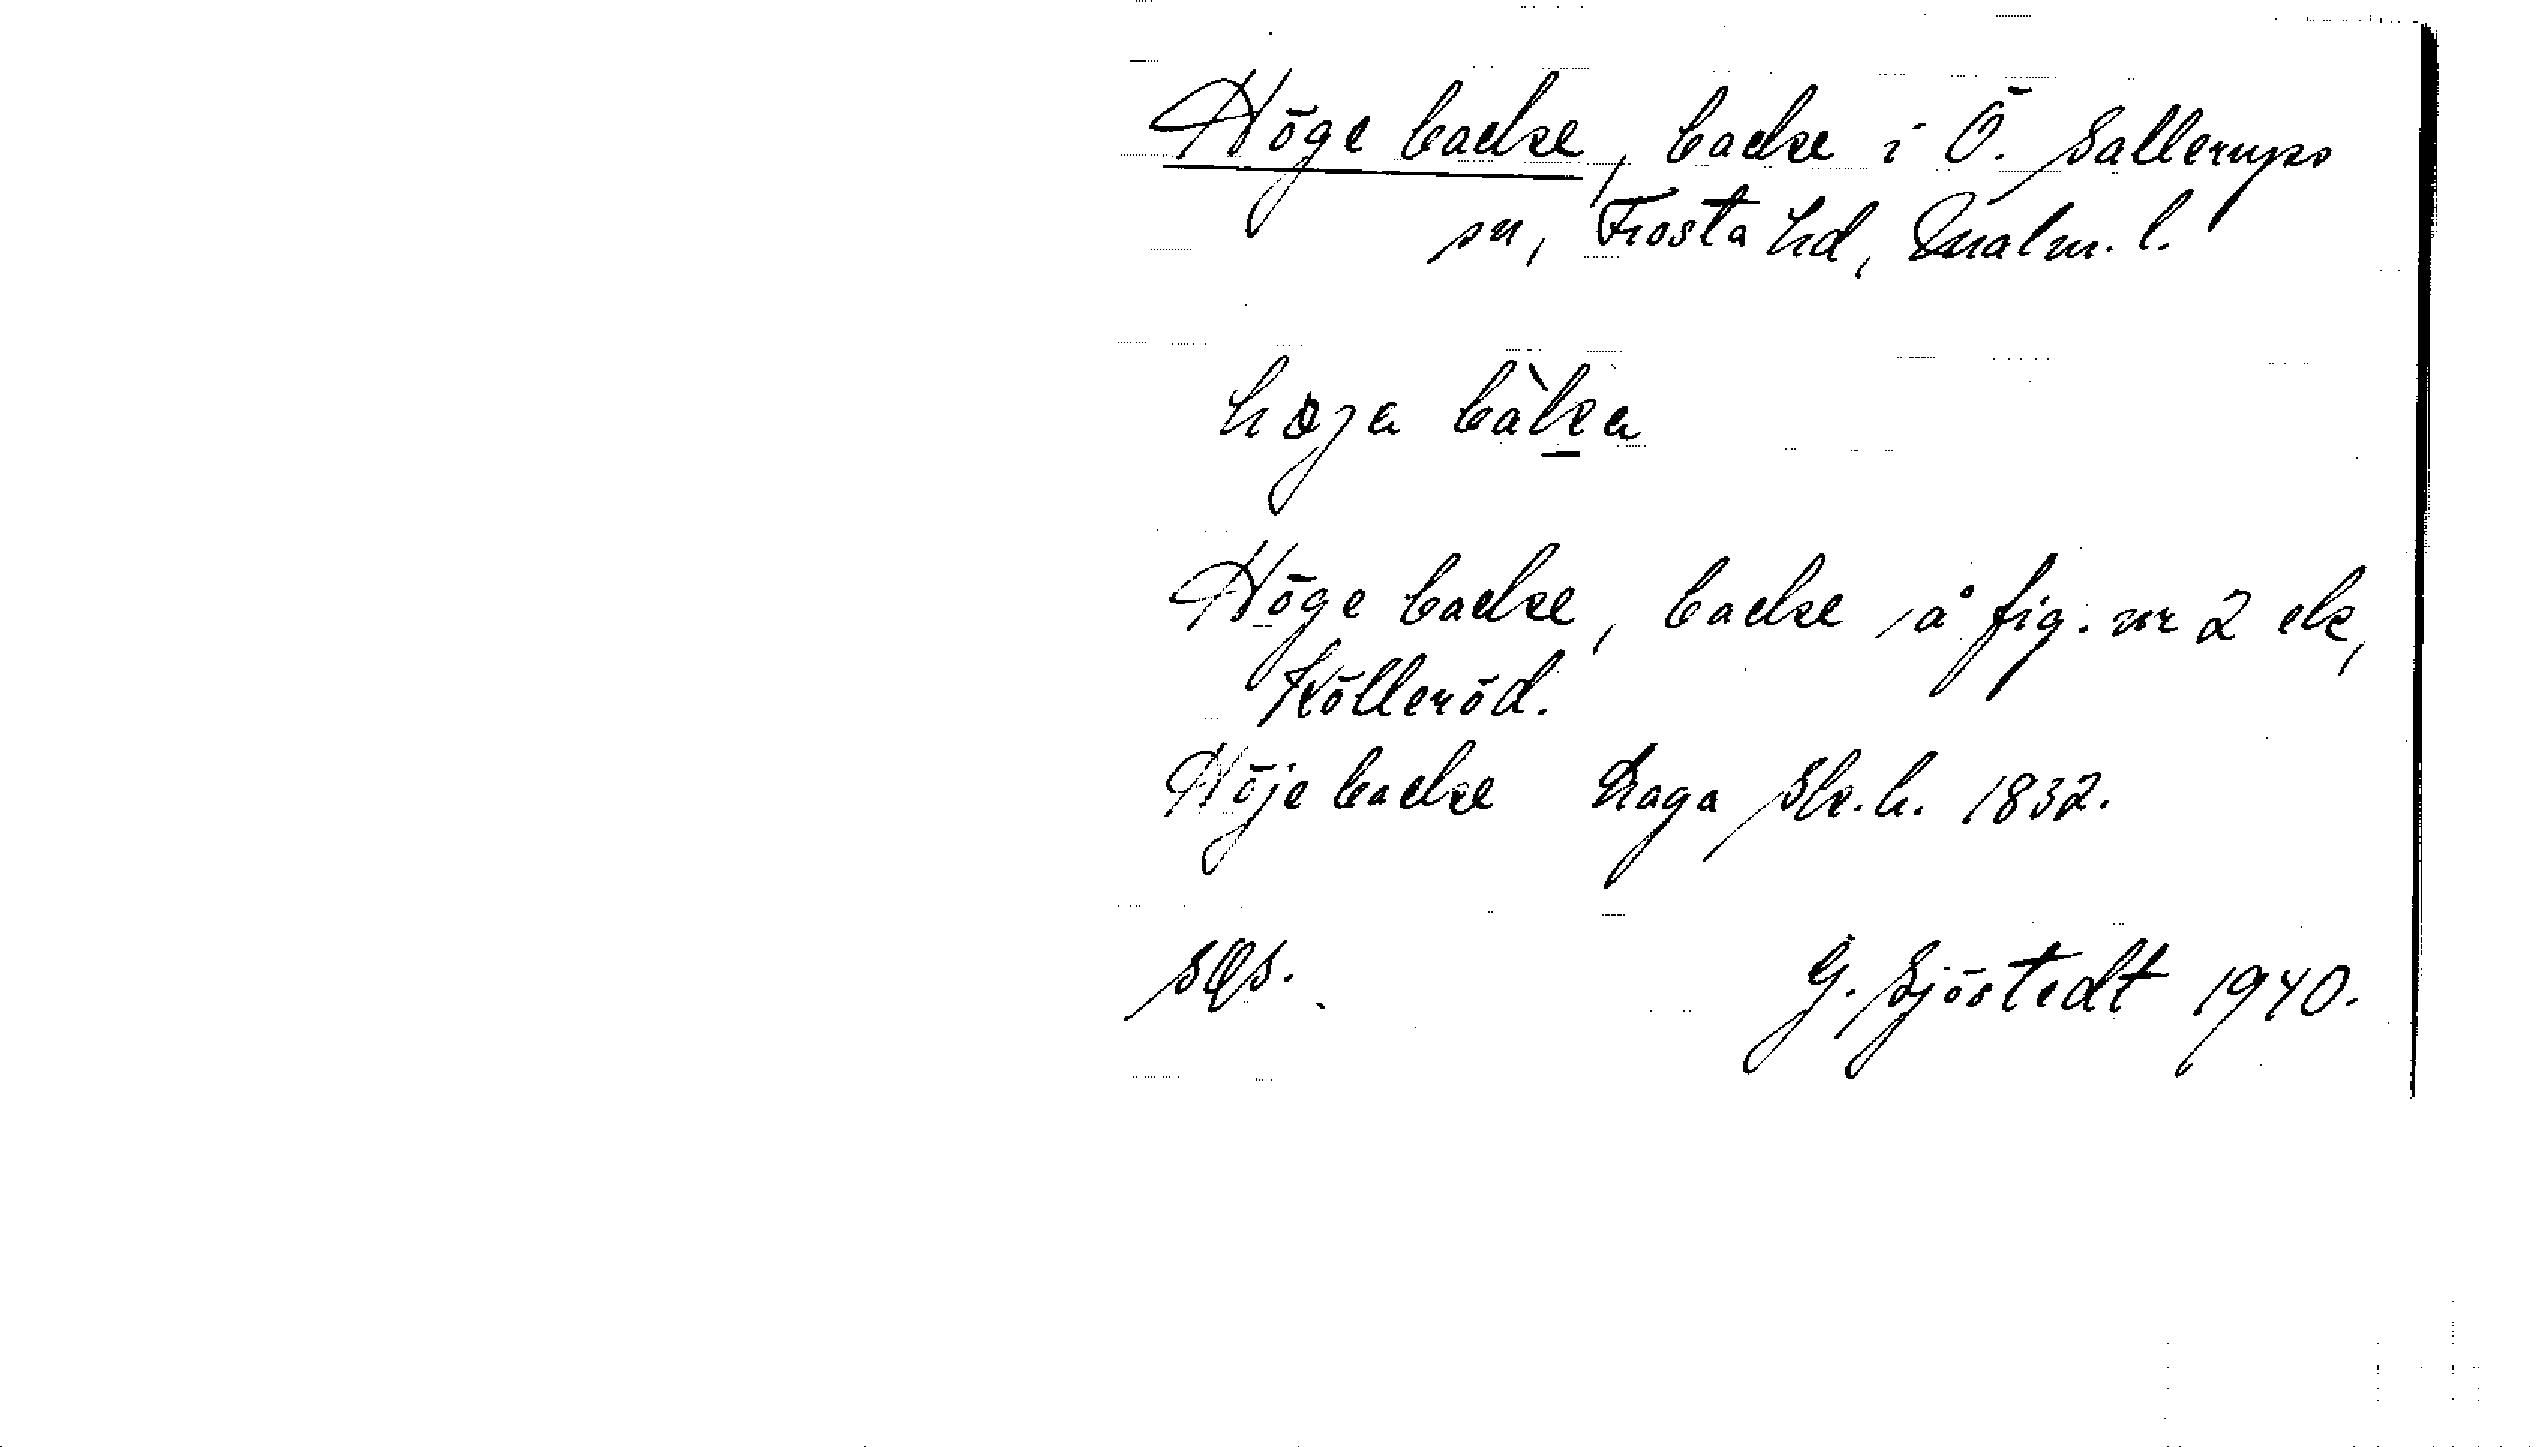 Höge backe, backe i Ö. Sallerups
sn, Frosta hd, Malm. l.
Höge backe, backe å fig. nr 2 ek,
Kölleröd.
Höje backe Laga Sk. h. 1832.
G. Sjöstedt 1940.